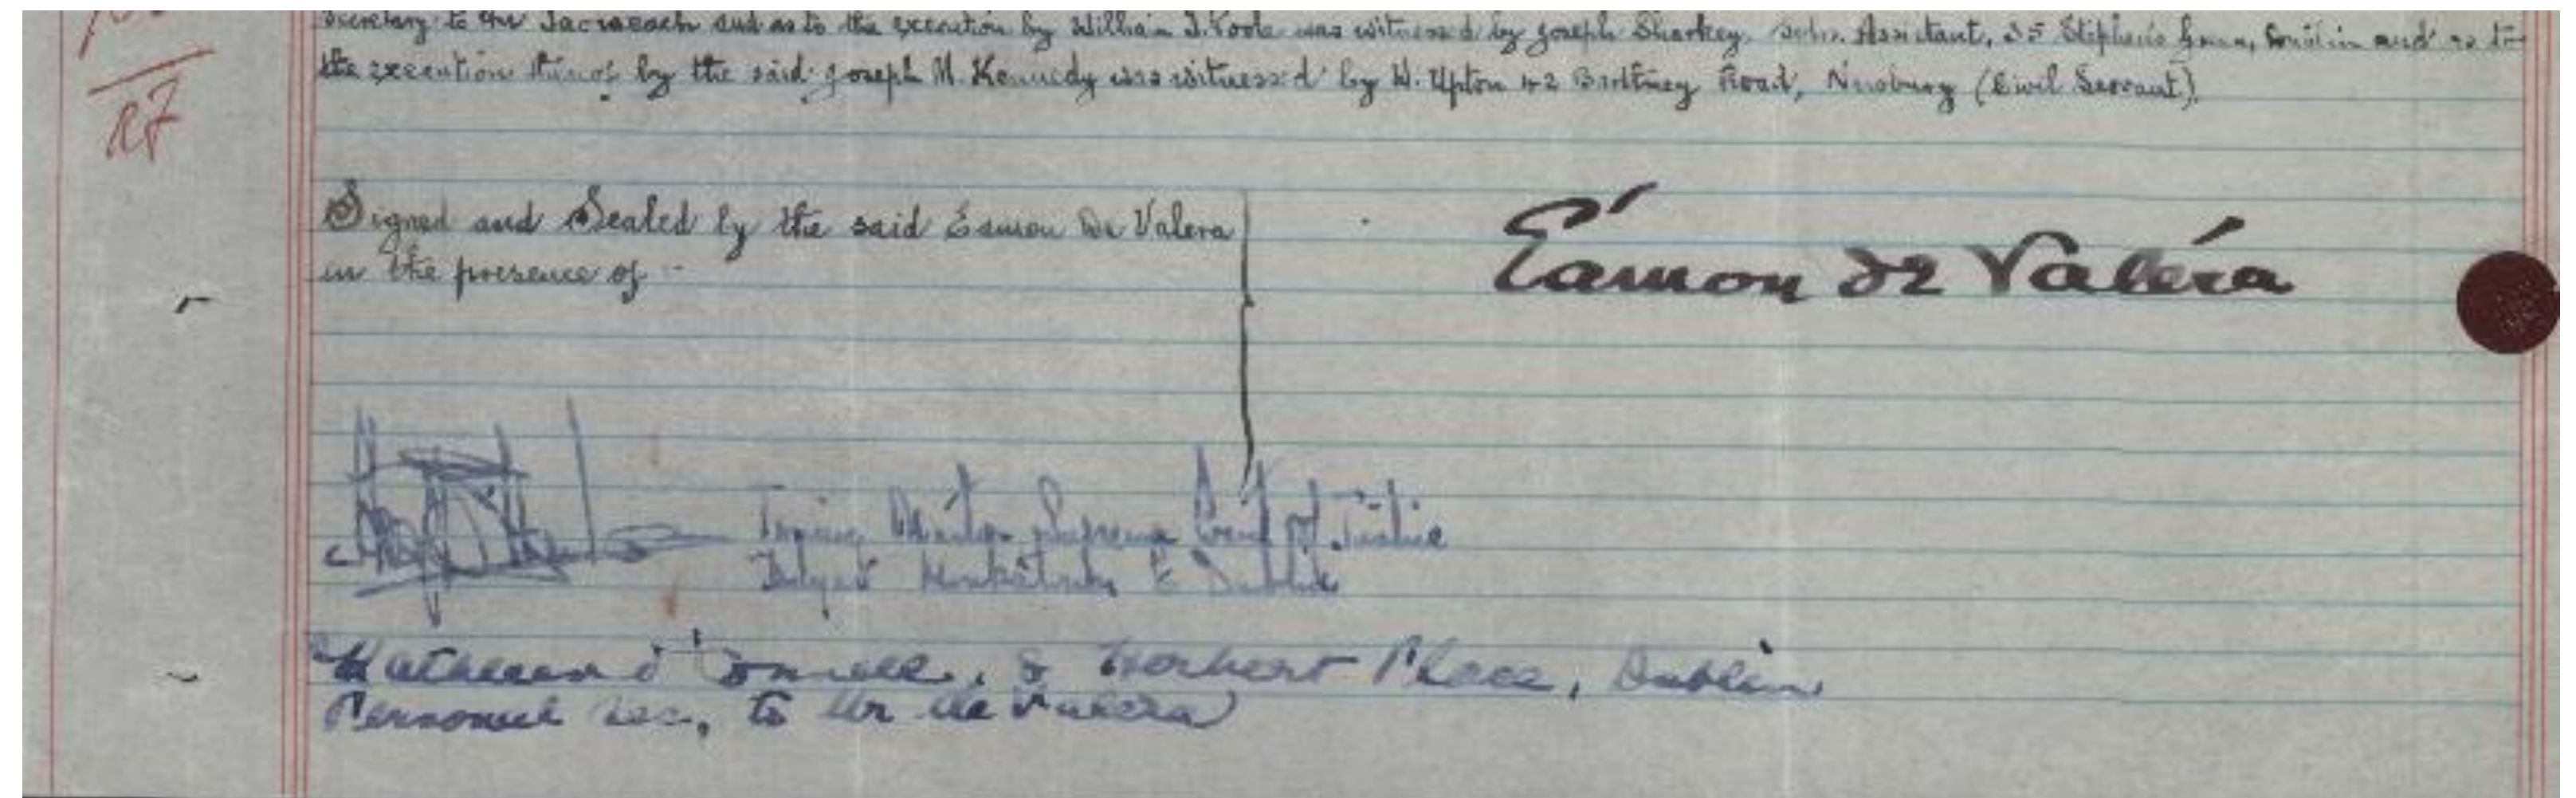 Secretary to the and as to the execution by William J. Poole was witnessed by Joseph Sharkey. Solrs. Assistant, 35 Stephens Green, Dublin and as to
the execution thereof by the said Joseph M. Kennedy was witnessed by W. Upton 42 Road, (Civil Servant).
RF
Signed and Sealed by the said Eamon De Valera
in the presence of
Éamon de Valéra
Supreme Court of Justice
Dublin
Kathleen O'Connell, Herbert Place, Dublin
Personal Sec, to Mr de Valera